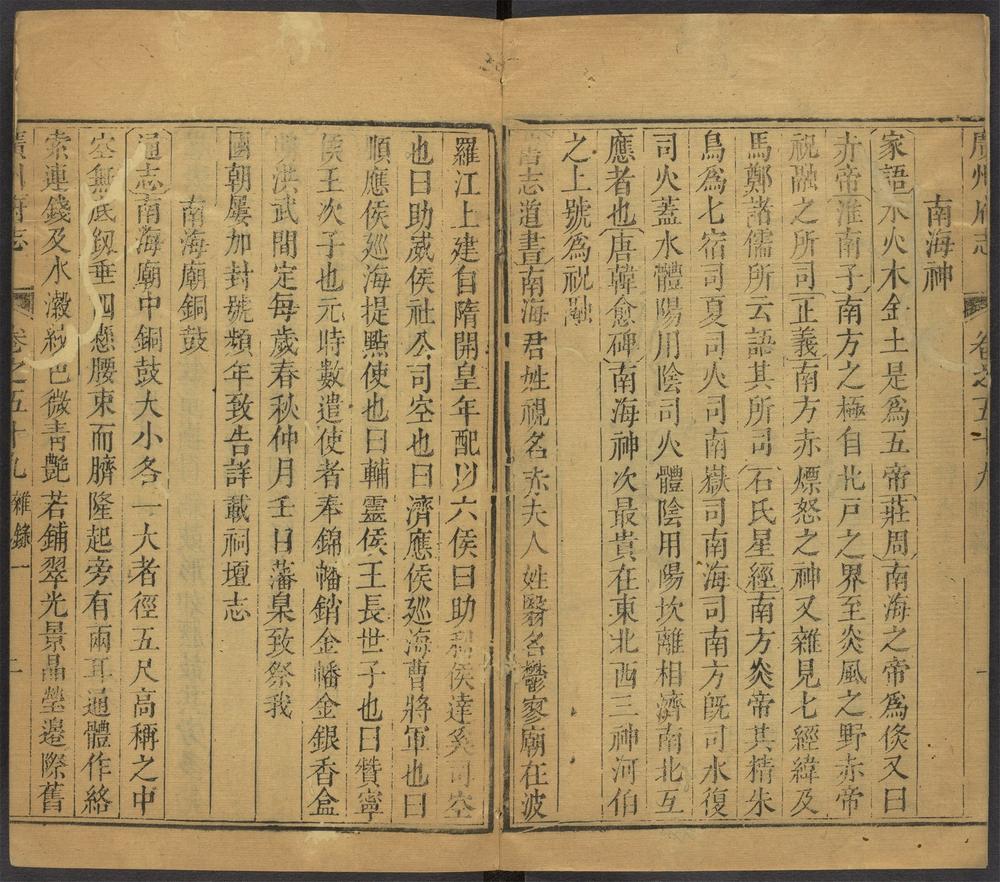 廣州府志 卷之五十九
南海神
家語水火木金土是為五帝莊周南海之帝爲倏又曰
赤帝淮南子南方之極自北戸之界至炎風之野赤帝
祝融之所司正義南方赤熛怒之神又雜見七經緯及
馬鄭諸儒所云語其所司石氏星經南方炎帝其精朱
鳥爲七宿司夏司火司南嶽司南海司南方旣司水復
司火蓋水體陽用陰司火體陰用陽坎離相濟南北互
應者也唐韓愈碑南海神次最貴在東北西三神河伯
之上號爲祝融
志道書南海君姓視名赤夫人姓翳名鬱寥廟在波
羅江上建自隋開皇年配以六侯曰助利侯達奚司空
也曰助威侯社公司空也曰濟應侯廵海曹將軍也曰
順應侯廵海提㸃使也曰輔靈侯王長世子也曰贊寧
侯王次子也元時數遣使者奉錦幡銷金幡金銀香盒
洪武間定每歲春秋仲月壬日藩臬致祭我
國朝屢加封號頻年致告詳載祠壇志
南海廟銅鼓
通志南海廟中銅鼓大小各一大者徑五尺高稱之中
空無底鈒垂四懸腰束而臍隆起旁有兩耳通體作絡
索連錢及水瀫紋色微青艷若鋪翠光景晶瑩邉際舊
廣州府志 卷之五十九 雜錄一 二